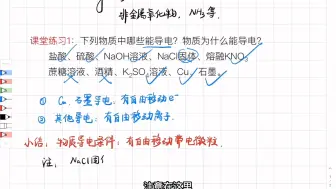 非金属氧化物，NH₃等.
课堂练习1：下列物质中哪些能导电？物质为什么能导电？
盐酸、硫酸、NaOH溶液、NaCl固体、熔融KNO₃
蔗糖溶液、酒精、K₂SO₄溶液、Cu、石墨。
① Cu、石墨导电，有自由移动e⁻
② 其他导电：有自由移动离子.
小结：物质导电条件：有自由移动带电微粒
注： NaCl固体
注意在这里